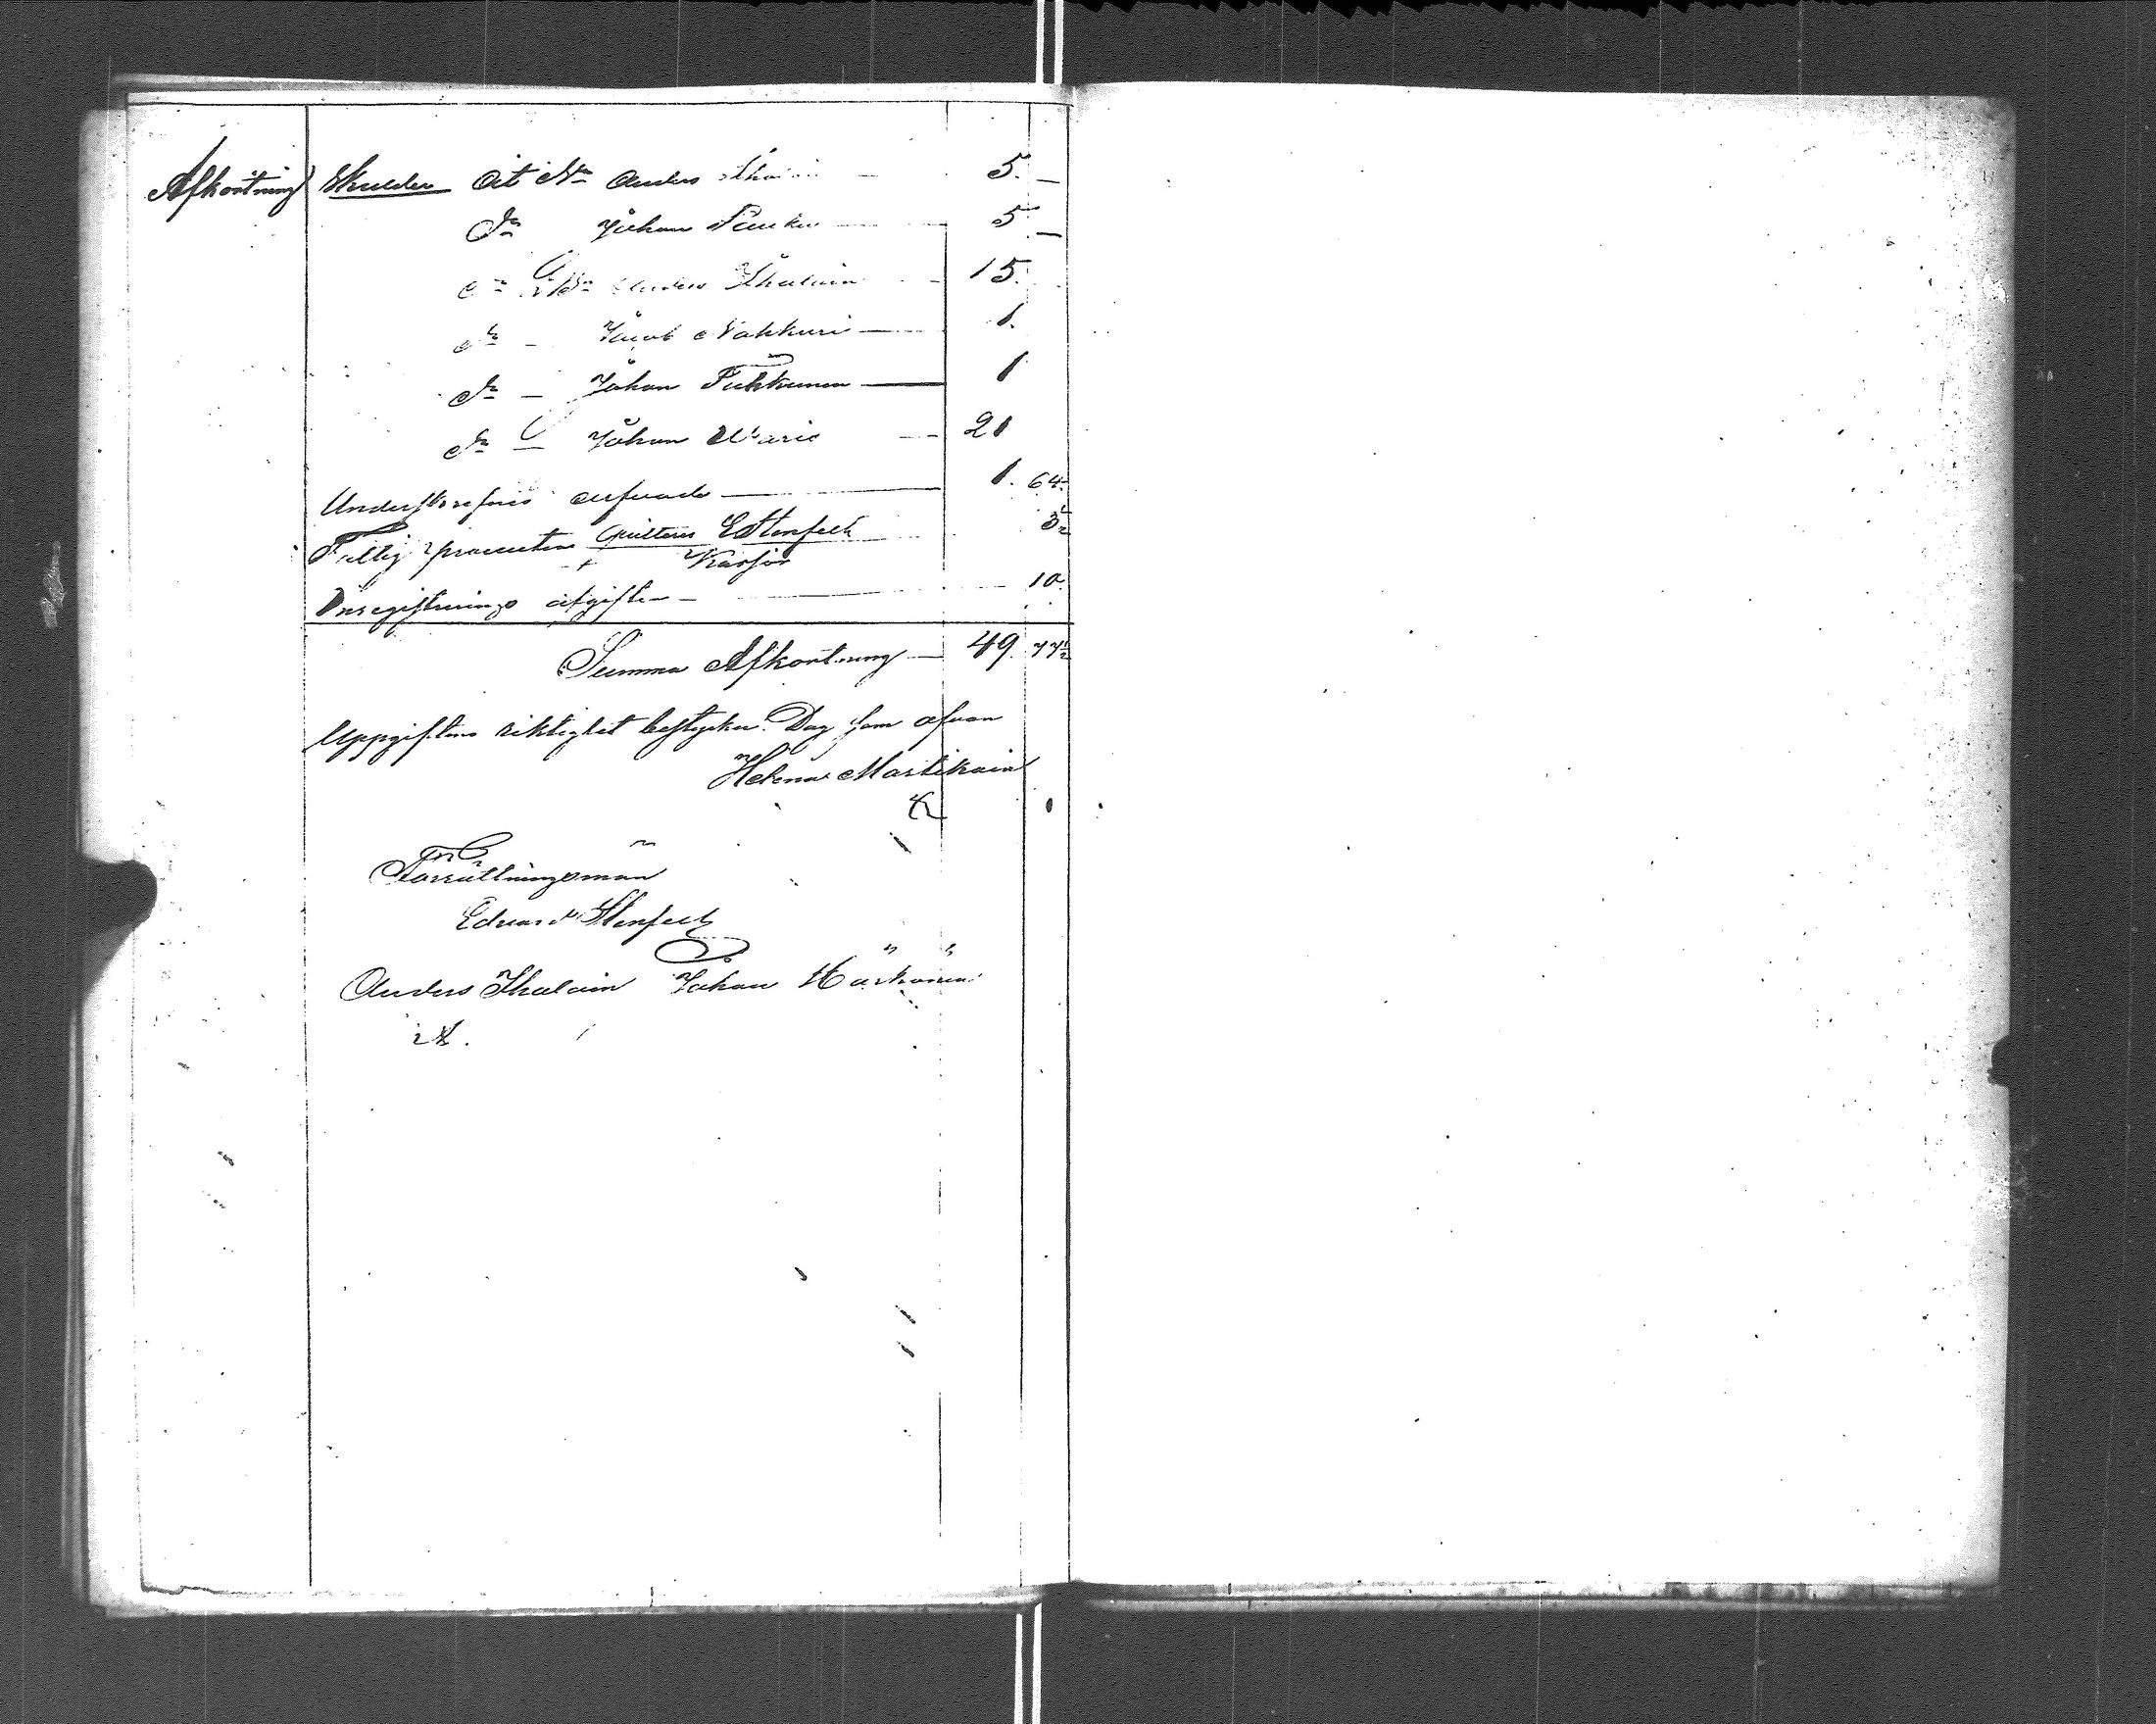 Afkortning Skulder åt Anders 5. —
Do Johan 5. —
Do Anders Ihalain 15.
Do — Jacob Nakkuri — 1.
Do — Johan Tukkunen — 1
Do — Johan Waris — 21
arfvode — 1. 64.
Fattig procenten Quitteras EStenfelt 3½
Kassör
Inregistrerings afgiften — 10.
Summa Afkortning — 49. 77½
Uppgiftens riktighet bestyrker Dag som ofvan
Helena Martikain
Förrättningsmän
Edvard Stenfelt
Anders Ihalain Johan Härkönen